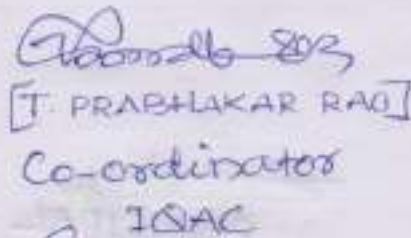 [T. PRABHAKAR RAO]
Co-ordinator
IQAC